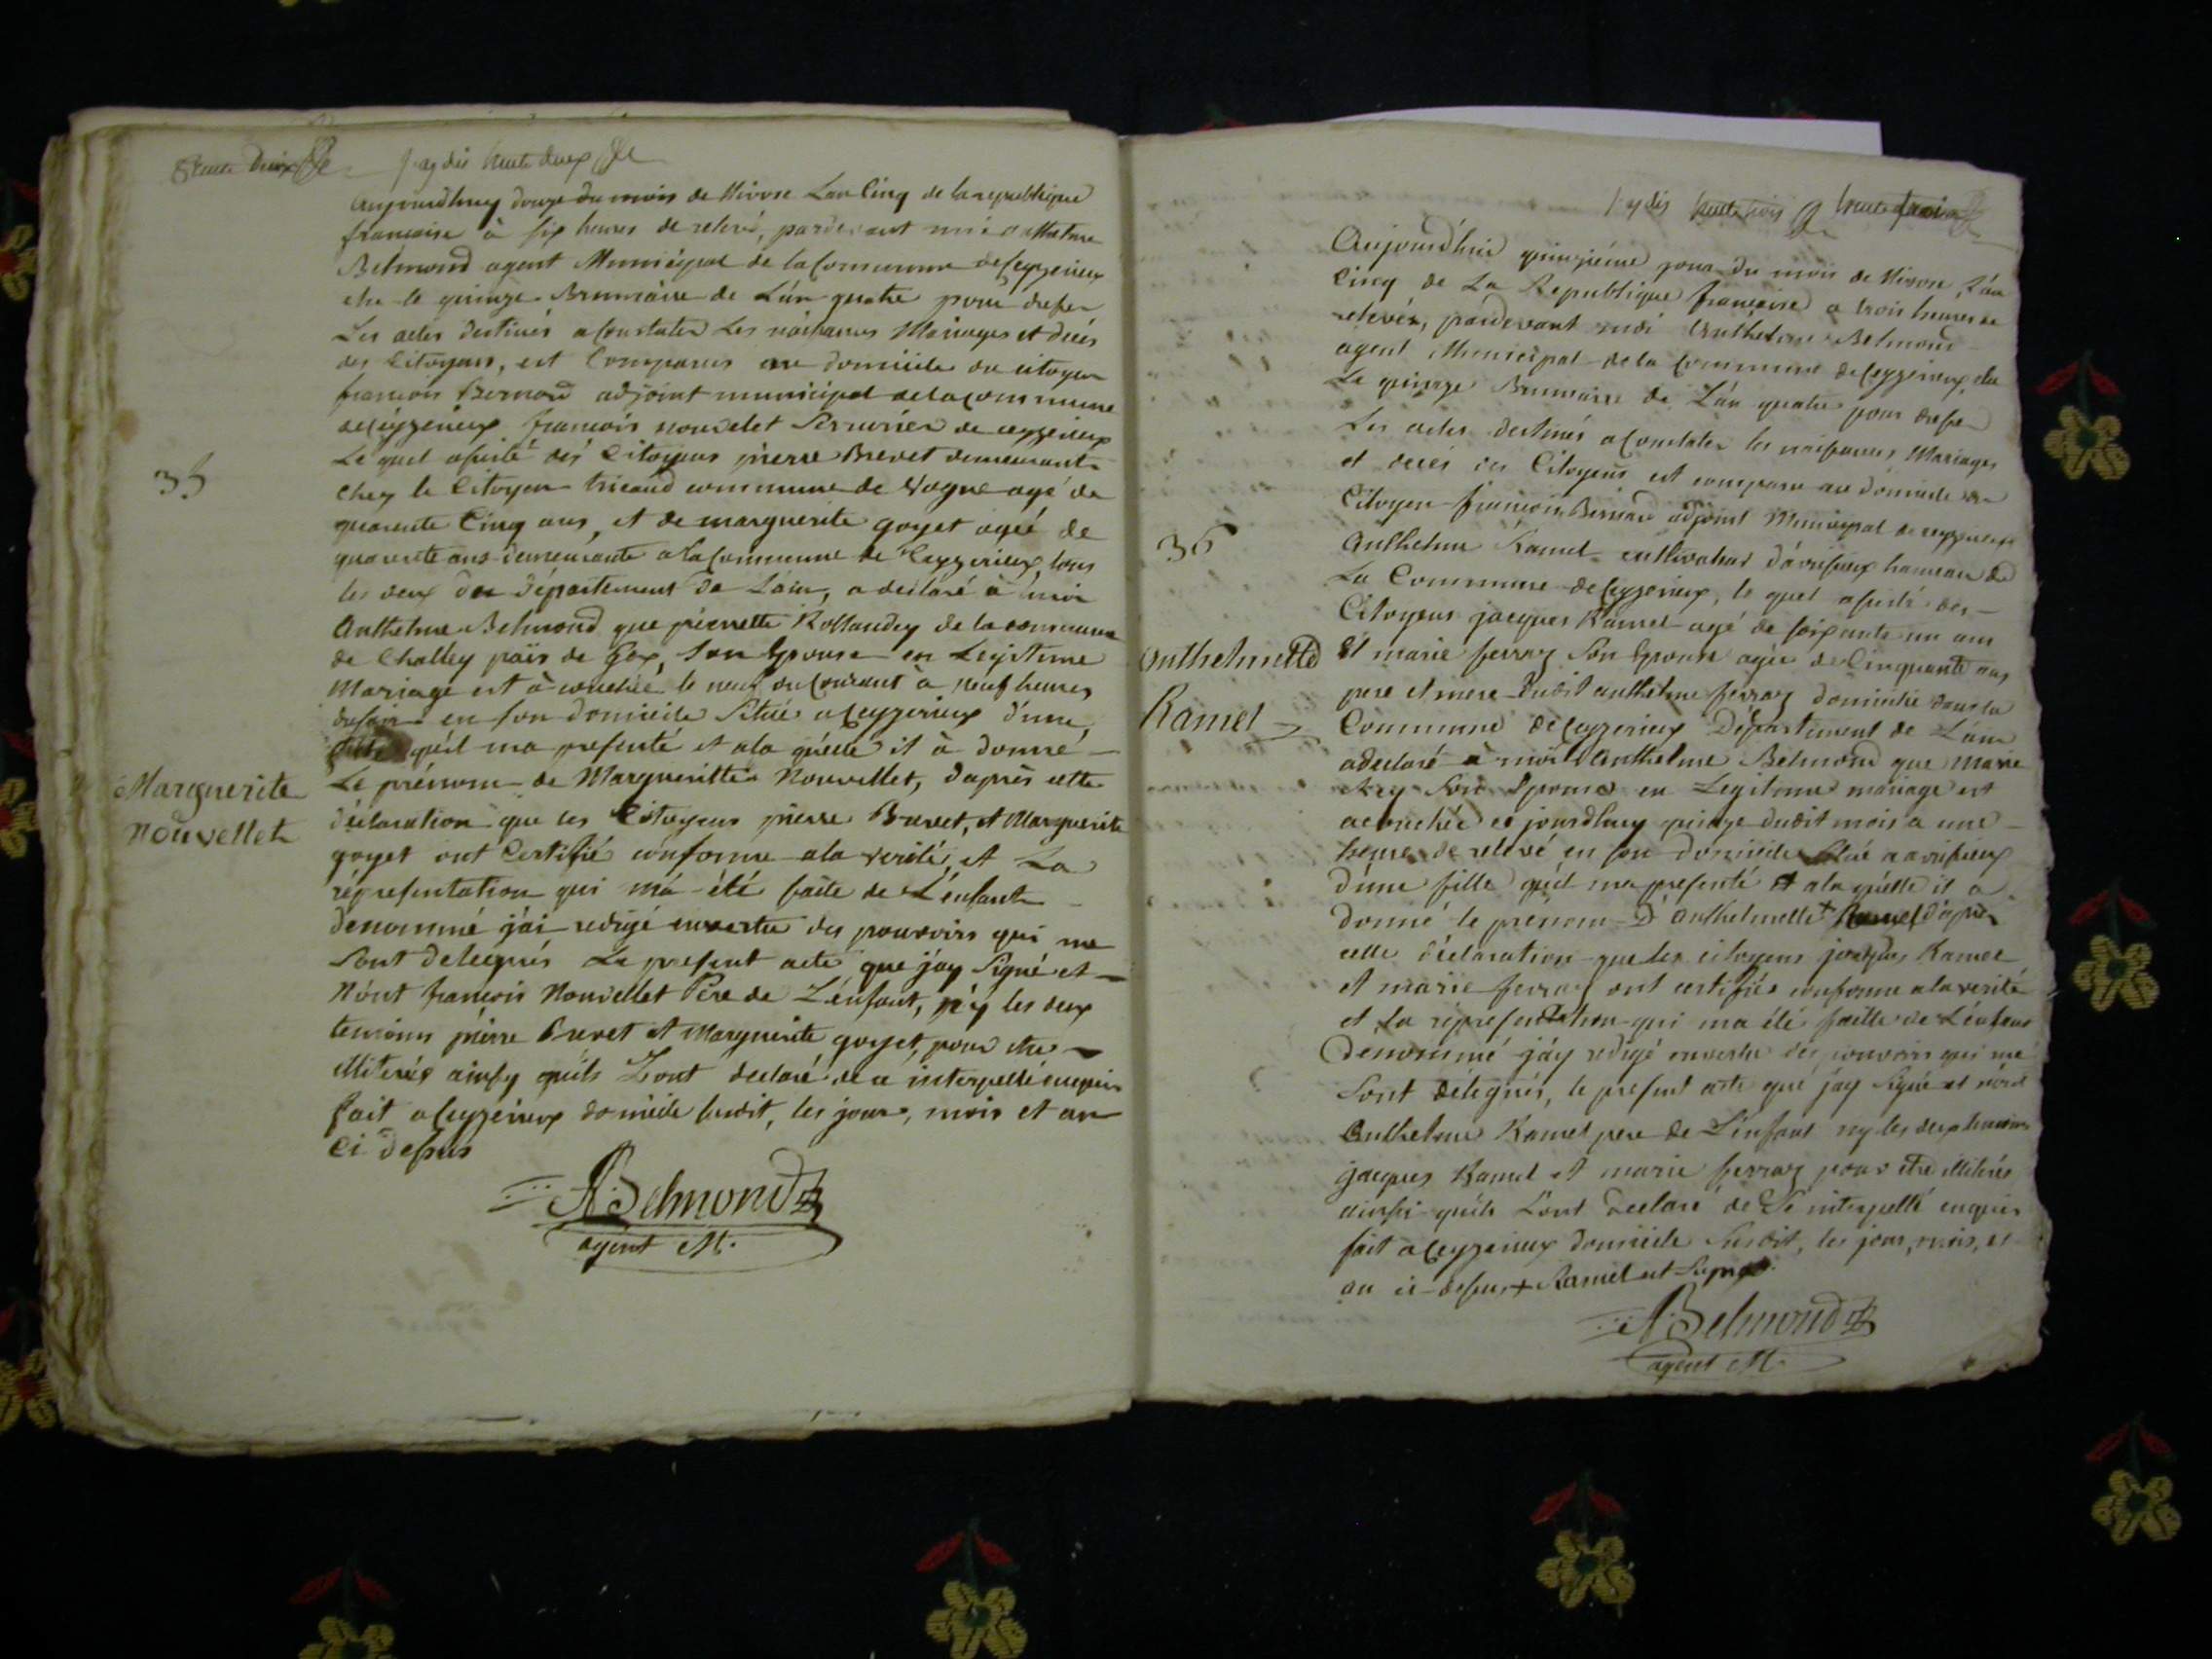 trente deux
je dis trente deux
Aujourdhuy douze du mois de Nivose L'an Cinq de la republique
francaise à six heures de relevé, pardevant moi anthelme
Belmond agent Municipal de la Commune de Ceyzerieux
elu le quinze Brumaire de L'an quatre pour dresser
Les actes destinés a Constater Les naissances Mariages et decés
des Citoyens, est Comparus au domicile du citoyen
francois Bernard adjoint municipal de la Commune
de Ceyzerieux francois nouvelet Serrurier de ceyzerieux
Le quel assisté dés Citoyens pierre Brevet demeurant
chez le Citoyen tricaud commune de Vogne agé de
quarente Cinq ans, et de marguerite goyet agéé de
quarente ans demeurante a la Commune de Ceyzerieux, tous
les deux du Département de Lain, a déclaré à moi
Anthelme Belmond que pierrette Rollandey de la commune
de Challey païs de Gex, Son Epouse en Legitime
Mariage est à couchéé le neuf du Courant à neuf heures
du soir en son domicile Situé a Ceyzerieux d'une
fille qu'il ma presenté et a la quelle il à donné
Le prénom de Margueritte Nouvellet, d'aprés cette
déclaration que les Citoyens pierre Brevet, et Marguerite
goyet ont Certifié conforme a la verité, et La
répresentation qui m'a été faite de L'énfant
dénommé j'ai redigé en vertu des pouvoirs qui me
Sont delegués Le present acte que j'ay Signé et
N'ont francois Nouvellet Pére de L'énfant, n'y les deux
temoins pierre Brevet et Marguerite goyet, pour etre
illiterés ainsy qu'ils L'ont declaré de ce interpellé enquis
fait a Ceyzerieux domicile susdit, les jour, mois et an
Ci dessus
ABelmond
agent M.
35
Marguerite
Nouvellet
je dis trente trois trente trois
Aujourd'hui quinziéme jour du mois de Nivose, L'an
Cinq de La Republique française a trois heures de
relevéé, pardevant moi Anthelme Belmond
agent Municipal de la Commune de Ceyzerieux elu
Le quinze Brumaire de L'an quatre pour dresser
Les actes destinés a Constater les naissances Mariages
et decés des Citoyens est comparu au domicile du
Citoyen francois Bernard adjoint Municipal de ceyzerieux
Anthelme Ramel cultivateur d'avrissieux hameau de
La Commune de Ceyzerieux, le quel assisté des
Citoyens jacques Ramel agé de soixante un ans
Et marie ferraz Son Epouse agée de Cinquante ans
pere et mere dudit anthelme ferraz domicilié dans la
Commune de Ceyzerieux Département de L'ain
a declaré à moi Anthelme Belmond que Marie
Rey Son Epouse en Legitime mariage est
acouchée ce jourdhuy quinze dudit mois a une
heure de relevé en son domicile Situé a avrissieux
d'une fille qu'il ma presenté et a la quelle il a
donné le prenom D'anthelmette + Ramel d'apres
cette déclaration que les citoyens jacques Ramel
et marie ferraz ont certifiés conforme a la verité
et La répresentation qui ma été faitte de L'énfant
Denommé j'ay redigé en vertu des pouvoirs qui me
Sont délegués, le present acte que j'ay Signé et n'ont
Anthelme Ramel pere de L'enfant ny les deux temoins
jacques Ramel et marie ferraz pour etre illiterés
ainsi qu'ils L'ont declaré de Ce interpellé enquis
fait a Ceyzerieux domicile Susdit, les jour, mois, et
an ci-dessus + Ramel est Suprimé.
ABelmond
agent M.
36
Anthelmette
Ramel